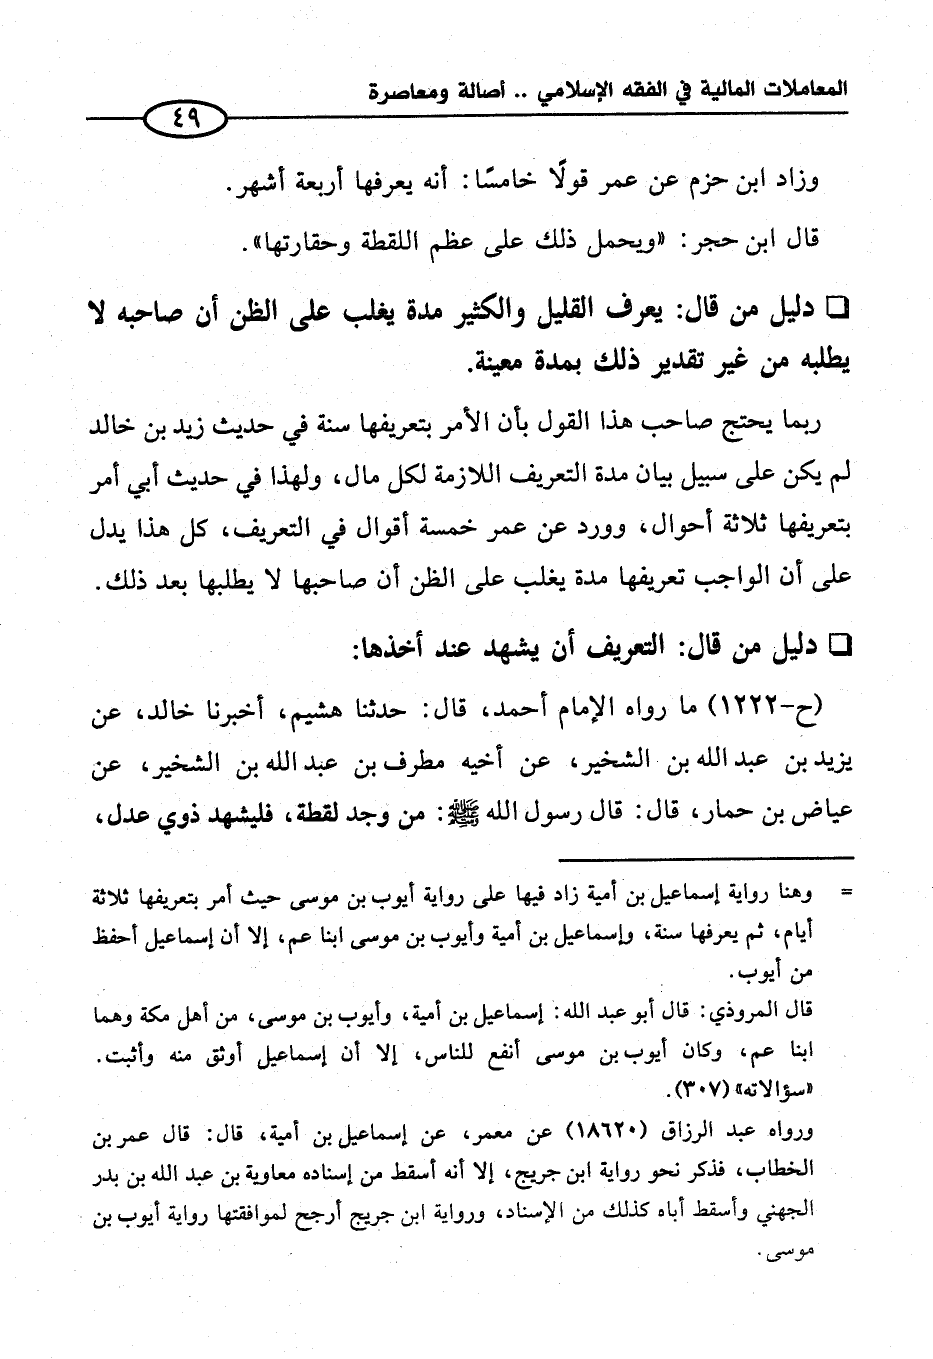 المعاملات المالية في الفقه الإسلامي .. أصالة ومعاصرة
٤٩
وزاد ابن حزم عن عمر قولًا خامسًا: أنه يعرفها أربعة أشهر.
قال ابن حجر: «ويحمل ذلك على عظم اللقطة وحقارتها».
❏ دليل من قال: يعرف القليل والكثير مدة يغلب على الظن أن صاحبه لا
يطلبه من غير تقدير ذلك بمدة معينة.
ربما يحتج صاحب هذا القول بأن الأمر بتعريفها سنة في حديث زيد بن خالد
لم يكن على سبيل بيان مدة التعريف اللازمة لكل مال، ولهذا في حديث أبي أمر
بتعريفها ثلاثة أحوال، وورد عن عمر خمسة أقوال في التعريف، كل هذا يدل
على أن الواجب تعريفها مدة يغلب على الظن أن صاحبها لا يطلبها بعد ذلك.
❏ دليل من قال: التعريف أن يشهد عند أخذها:
(ح-١٢٢٢) ما رواه الإمام أحمد، قال: حدثنا هشيم، أخبرنا خالد، عن
يزيد بن عبد الله بن الشخير، عن أخيه مطرف بن عبد الله بن الشخير، عن
عياض بن حمار، قال: قال رسول الله ﷺ: من وجد لقطة، فليشهد ذوي عدل،
= وهنا رواية إسماعيل بن أمية زاد فيها على رواية أيوب بن موسى حيث أمر بتعريفها ثلاثة
أيام، ثم يعرفها سنة، وإسماعيل بن أمية وأيوب بن موسى ابنا عم، إلا أن إسماعيل أحفظ
من أيوب.
قال المروذي: قال أبو عبد الله: إسماعيل بن أمية، وأيوب بن موسى، من أهل مكة وهما
ابنا عم، وكان أيوب بن موسى أنفع للناس، إلا أن إسماعيل أوثق منه وأثبت.
«سؤالاته» (٣٠٧).
ورواه عبد الرزاق (١٨٦٢٠) عن معمر، عن إسماعيل بن أمية، قال: قال عمر بن
الخطاب، فذكر نحو رواية ابن جريج، إلا أنه أسقط من إسناده معاوية بن عبد الله بن بدر
الجهني وأسقط أباه كذلك من الإسناد، ورواية ابن جريج أرجح لموافقتها رواية أيوب بن
موسى.